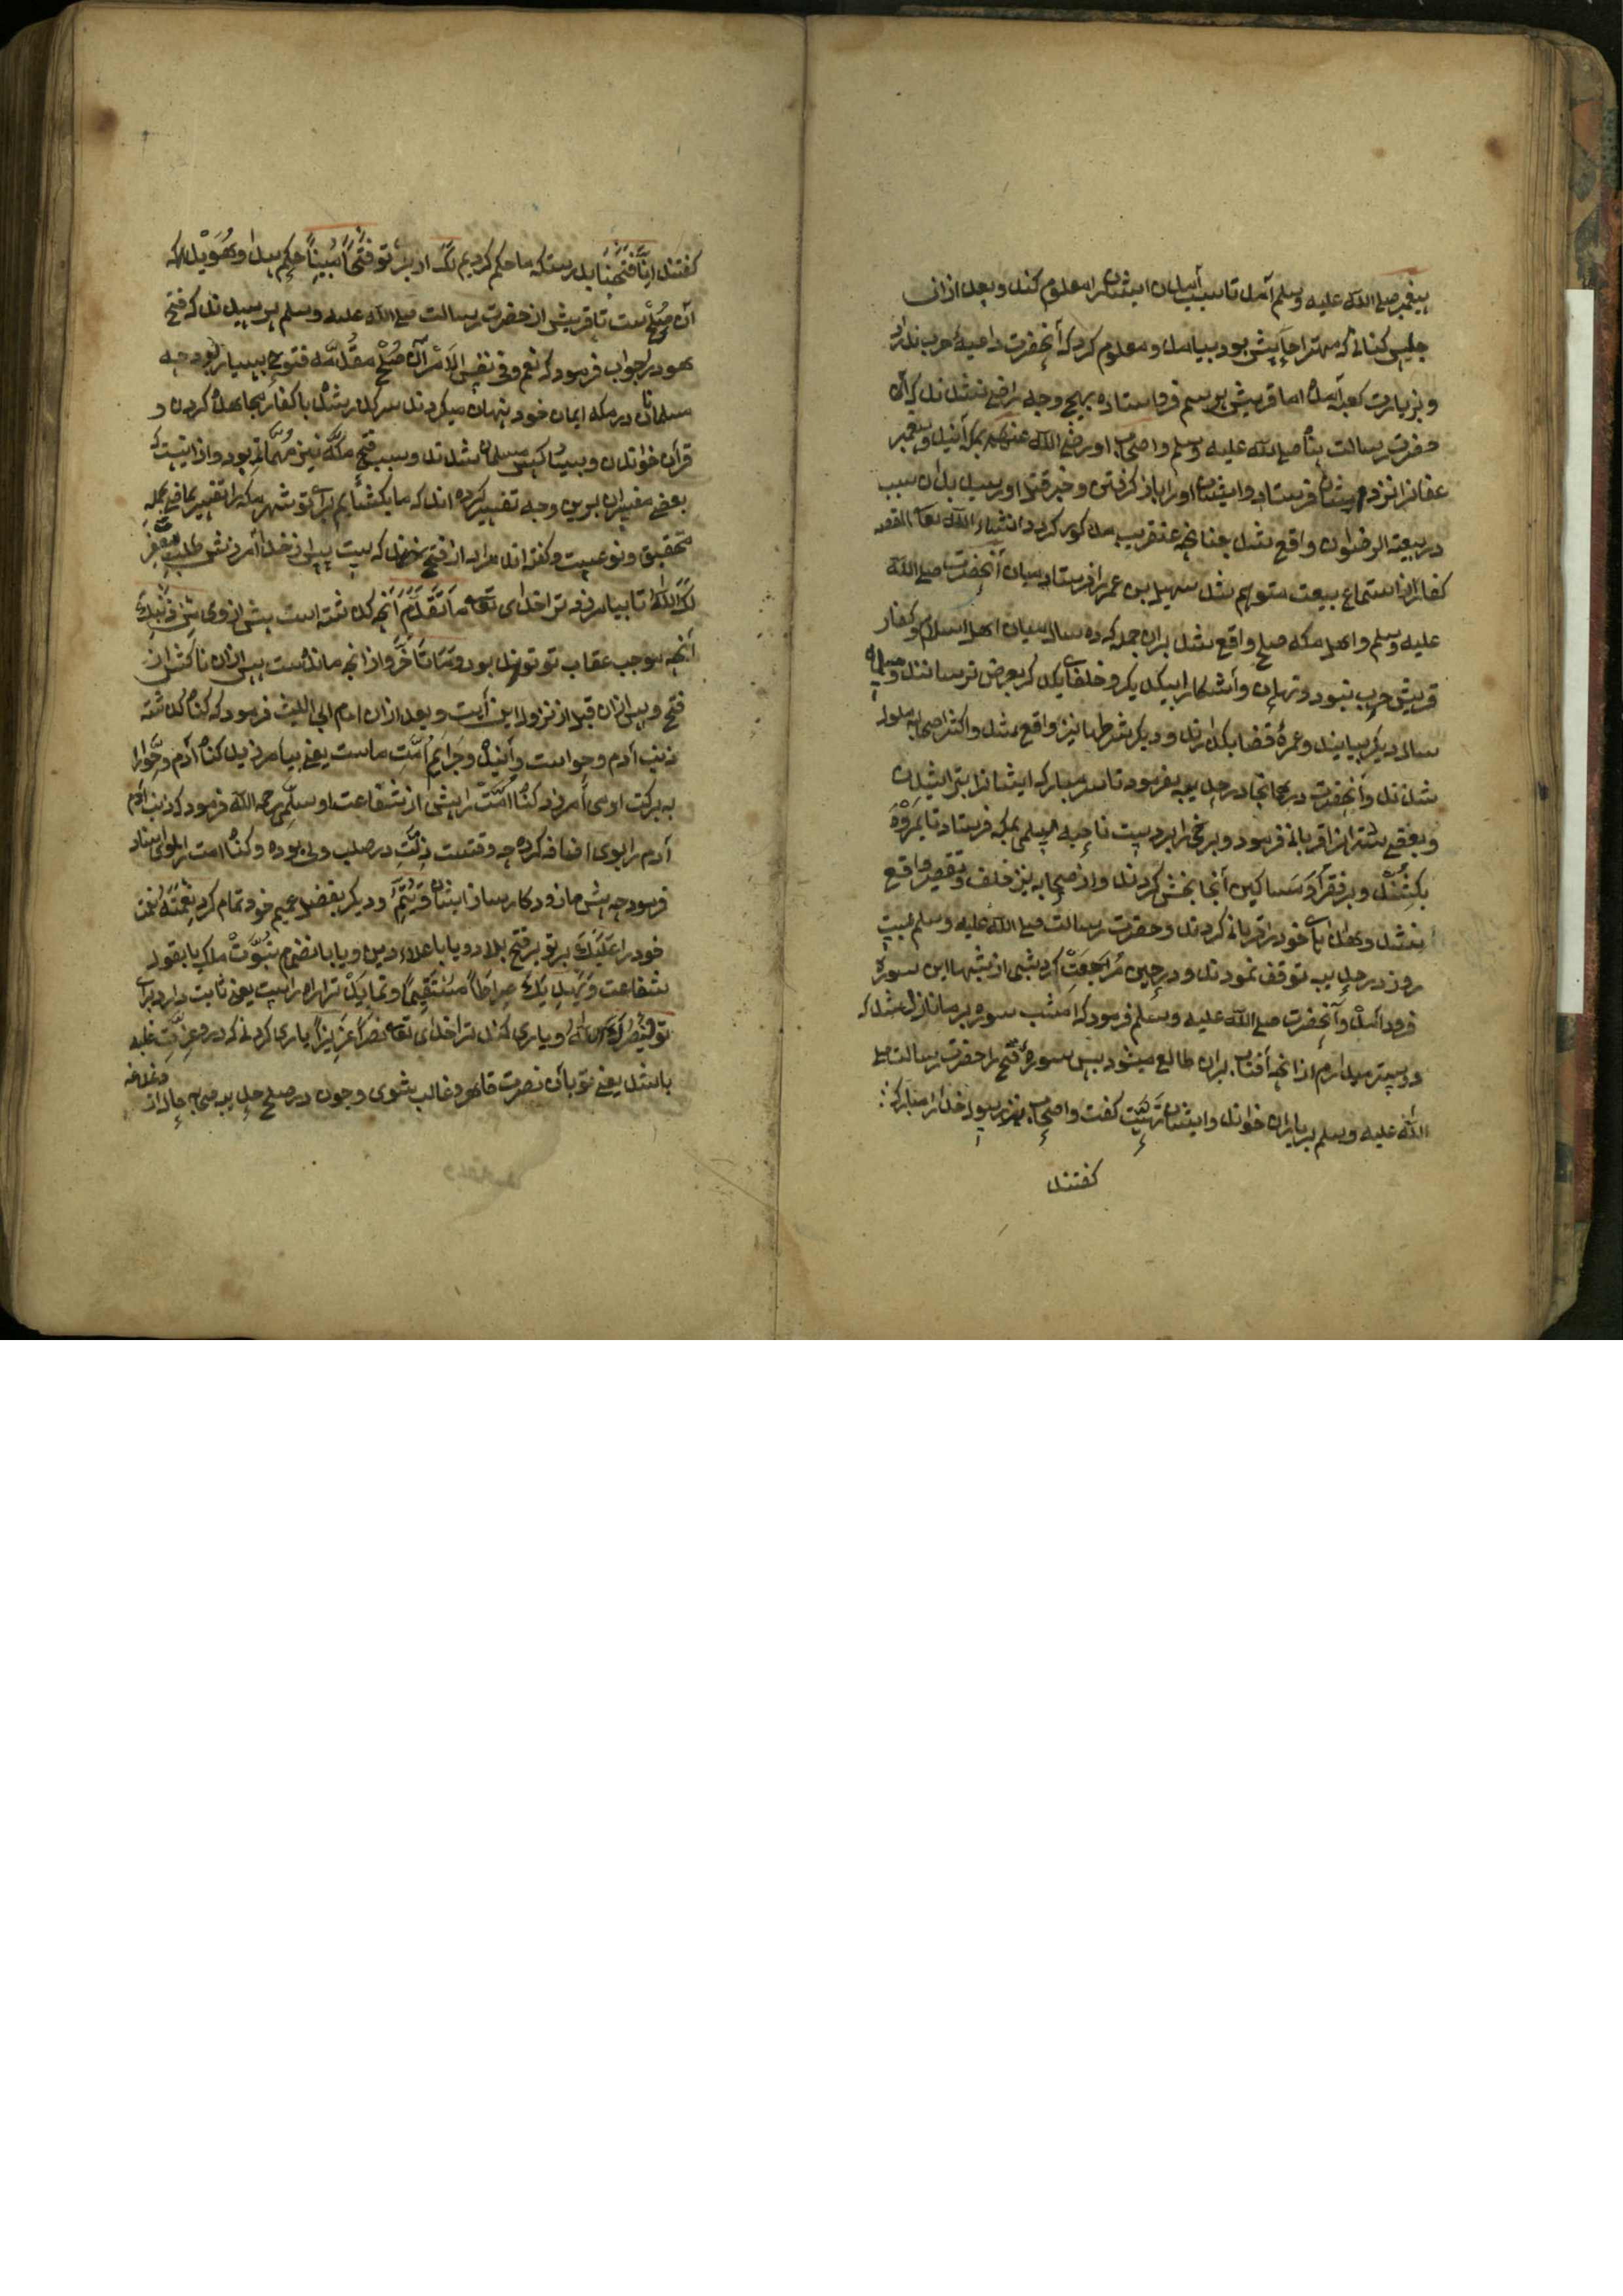 پیغمبر صلی الله علیه وسلم آمد تا سبب آمدن ایشان را معلوم کند و بعد از ان
جلیس کنانی که مهتر احابیش بود بیامد و معلوم کرد که آنحضرت داعیۀ حرب ندارد
و بزیارت کعبه آمده اما قریش بر سم فرو استاده بهیچ وجه راضی نشدند که آن
حضرت رسالت پناه صلی الله علیه وسلم واصحاب او رضی الله عنهم بمکه آیند و پیغمبر
عثمانرا نزد ایشان فرستاد و ایشان او را باز گرفتن و خبر قتل او رسید بدان سبب
در بیعة الرضوان واقع شد چنانچه عنقریب مذکور کردد انشاء الله تعالی القصه
کفار از استماع بیعت متوهم شد سهیل بن عمر را فرستاد میان آنحضرت صلی الله
علیه وسلم واهل مکه صلح واقع شد بران جمله که ده سال میان اهل اسلام و کفار
قریش حرب نبود و نهان و آشکارا بیکدیکر و خلفای یکدکر بعرض نرسانند و
سال دیکر بیایند و عمرۀ قضا بکذارند و دیکر شرطها نیز واقع شد واکثر اصحاب ملول
شدند و آنحضرت در همانجا در حدیبیه بفرمود تا سر مبارکه ایشانرا بتراشیدن
و بعضی شترانرا قربانی فرمود و برخی را بردست ناجیه اسلمی بمکه فرستاد تا بمروه
بکشند و بر فقرآ و مساکین آنجا بخش کردند واز صحابه نیز خلف و تقصیر واقع
نشد و هدایای خود را قربانی کردند و حضرت رسالت صلی الله علیه وسلم بیست
روز در حدیبیه توقف نمودند و در حین مراجعت کردشبی از شبها این سوره
فرود آمد و آنحضرت صلی الله علیه وسلم فرمود که امشب سوره بر ما نازل شد که
دوستر میدارم از انچه آفتاب بران طالع میشود پس سورۀ فتح را حضرت رسالت صلی
الله علیه وسلم بر یاران خواند و ایشان تهنیت کفت واصحاب نیز رسول خدا را مبارکی
کفتند
کفتند انا فتحنا بدرستکه ما حکم کردیم لک از برای تو فتحا مبینا حکم پیدا و هویدا که
آن صلح است تا قریش از حضرت رسالت صلی الله علیه وسلم پرسیدند که فتح
بود در جواب فرمود که نعم و فی نفس الامر آن صلح مقدمه فتوح بسیار بود چه
مسلمانان در مکه ایمان خود پنهان میکردند سر کرده شد با کفار مجاهده کردن و
قرآن خواندن و بسیار کس مسلمان شدند و سبب فتح مکه نیز مهمات بود واز اینست که
بعضی مفسران برین وجه تفسیر کرده اند که ما بکشائیم برای تو شهر مکه را تعبیر بماضی بجهت
تحقیق و نوعیست و کفته اند مراد از فتح که بیست پس از خدا آمرزش طلب لیغفر
لک الله تا بیامرزد ترا خدای تعالی ما تقدم آنچه کذشته است پیش از وی من ذنبک
آنچه موجب عقاب تو تواند بود وما تاخر واز انچه مانداست پس از ان تا کشادن
فتح و پس از ان قبل از نزول این آیت و بعد از ان امام ابی اللیث فرمود که کناه کذشته
ذنب آدم و حواست و آینده و جرایم امت ماست یعنی بیامرزید کناه آدم و حوا را
به برکت او می آمرزد کناه امت را پیش از شفاعت او سلمی رحمه الله فرمود که ذنب آدم
آدم را بوی اضافه کرده چه وقتت ذلت در صلب وی بوده و کناه امت را بوی اسناد
فرمود چه پیش ما زود کار ساز ایشان ویتم و دیکر بفضل عمیم خود تمام کرد نعمته نعمت
خود را علیک بر تو بر فتح بلاد و یا باعلاء دین و یا بانضمام نبوت ملک یا بقول
شفاعت ویهدیک صراطا مستقیما و نماید ترا راه راست یعنی ثابت دارد برای
تو وینصرک الله ویاری کند ترا خدای تعالی نصرا عزیزا یاری کردنی که درو عزت غلبه
باشد یعنی تو بآن نصرت قاهر و غالب شوی و چون در صلح حدیبیه صحابه حال از